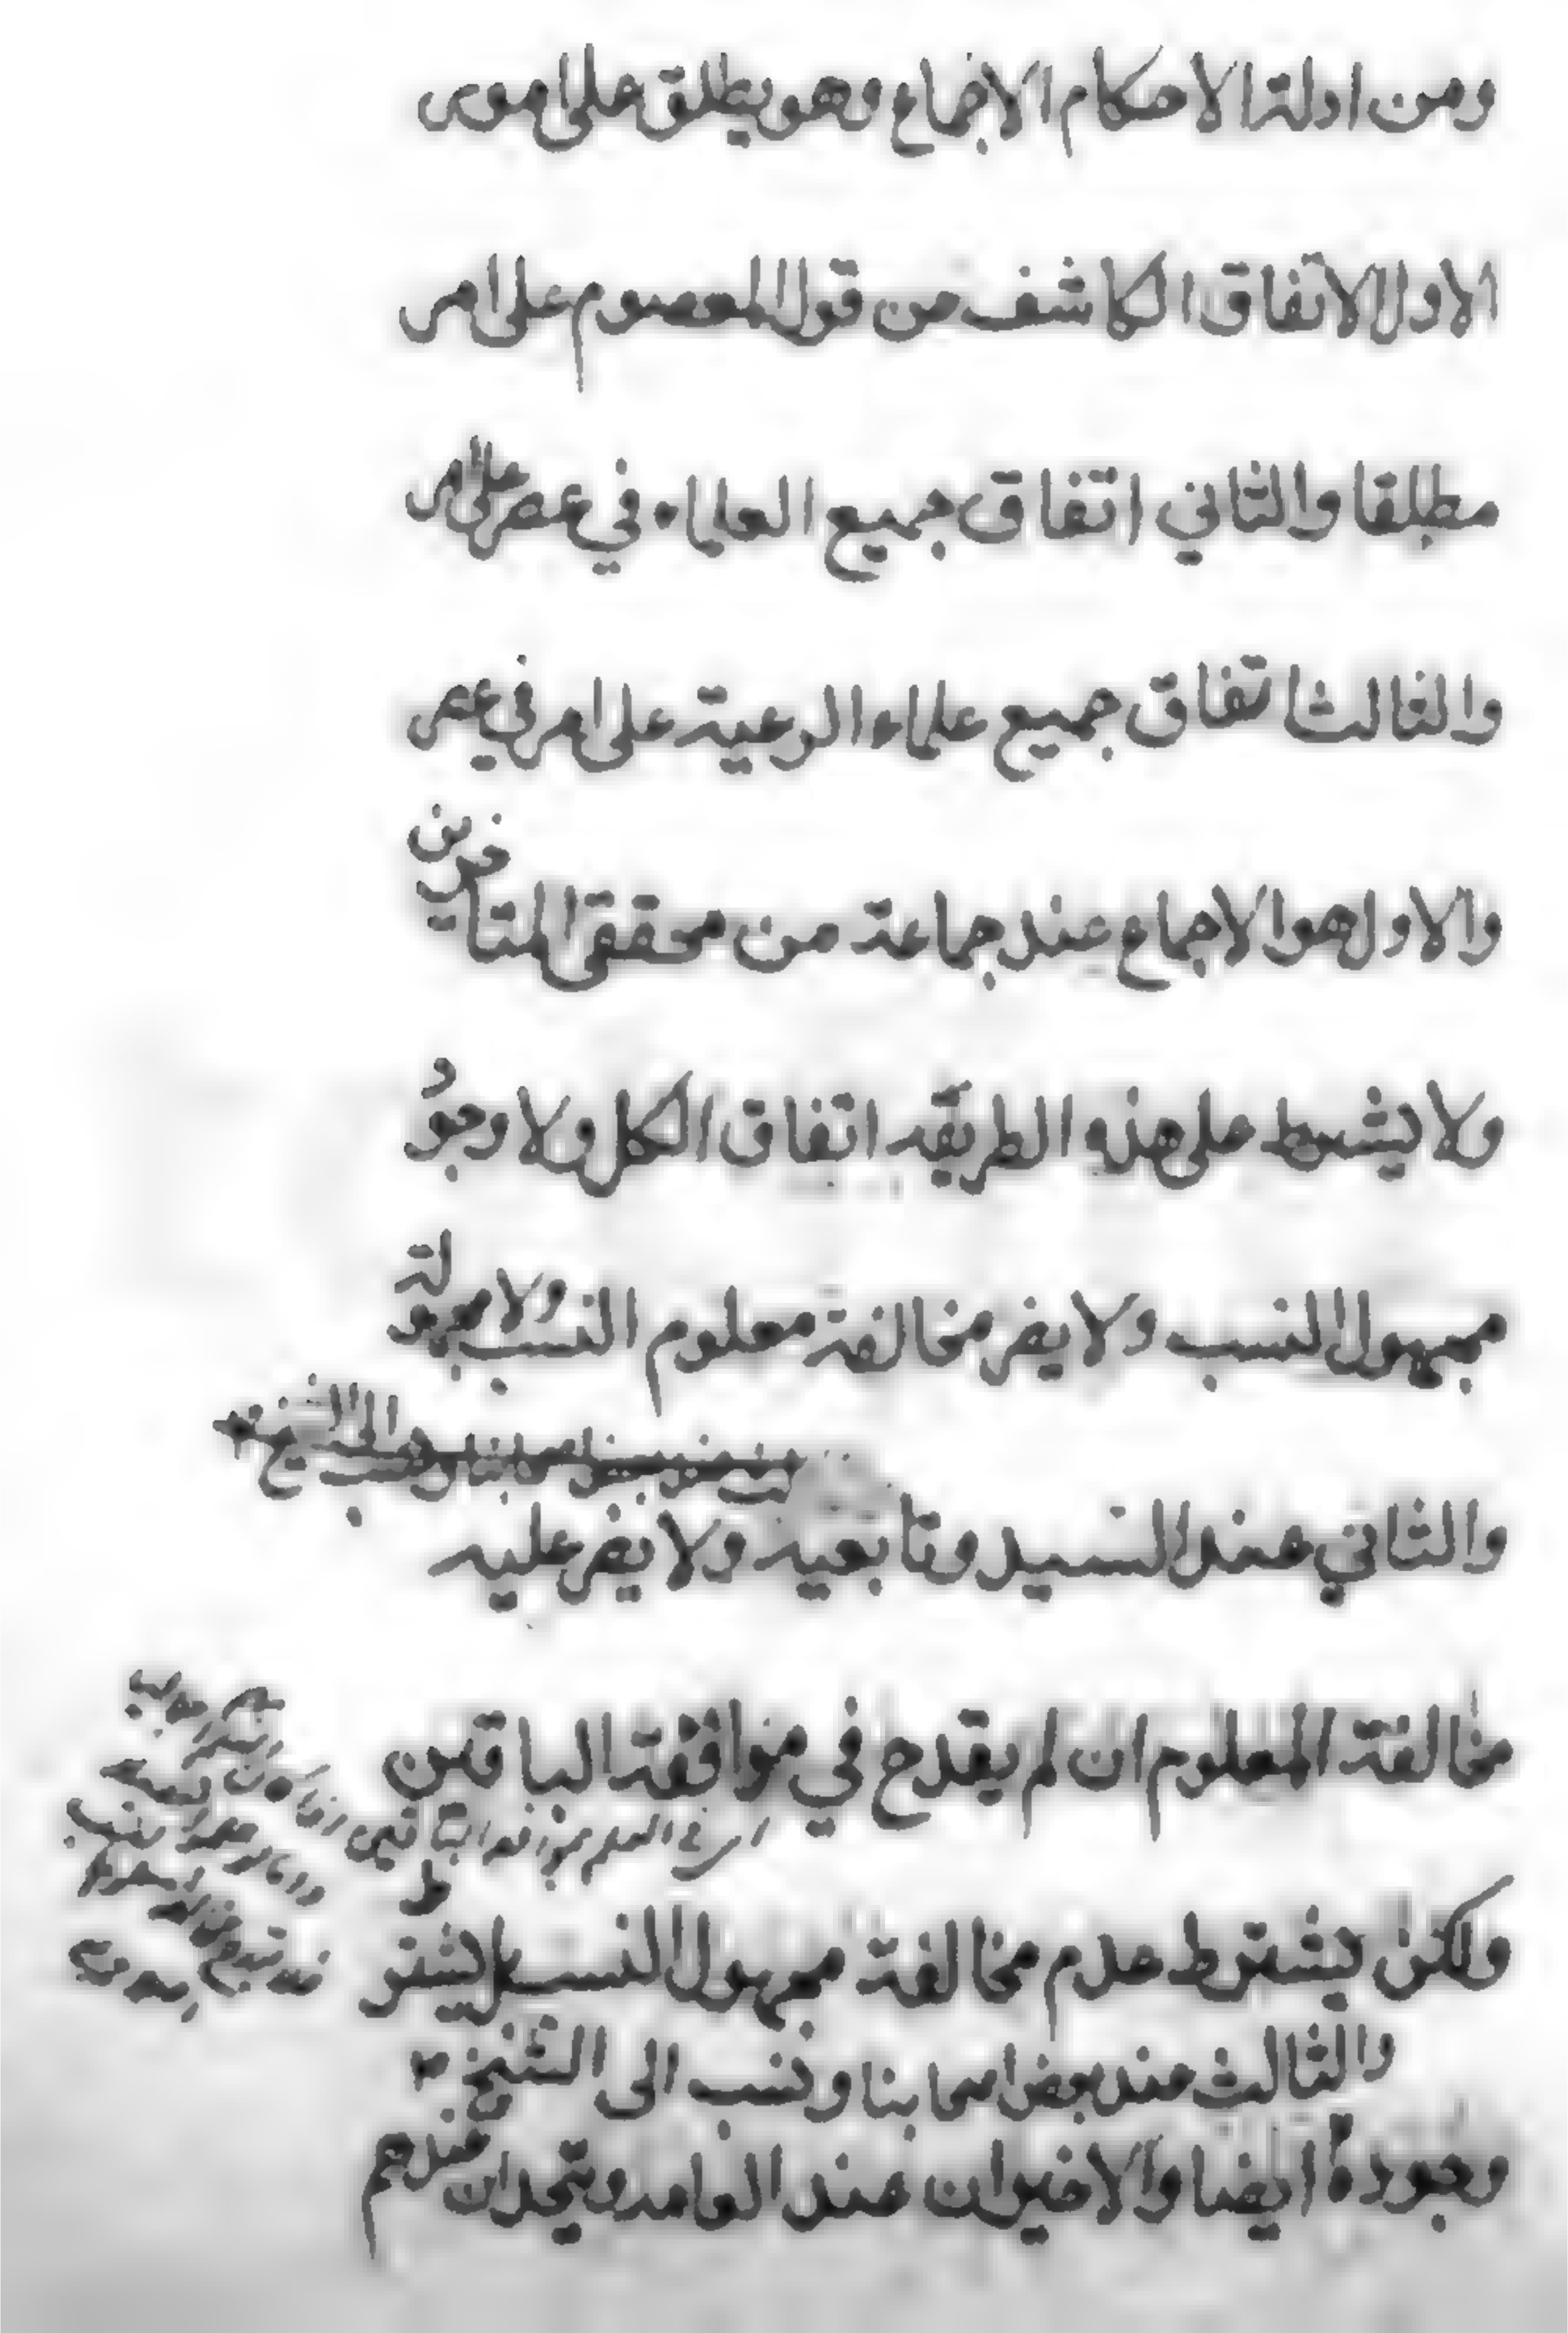 ومن ادلة الاحكام الاجماع وهو يطلق على امور
الاول الاتفاق الكاشف عن قول المعصوم على امر
مطلقا والثاني اتفاق جميع العلماء في عصر على امر
والثالث اتفاق جميع علماء الرعية على امر في عصر
والاول هو الاجماع عند جماعة من محققي المتأخرين
ولا يشترط على هذه الطريقه اتفاق الكل ولا وجود
مجهول النسب ولا يضر مخالفة معلوم النسب ولا مجهولة
والثاني عند السيد وتابعيه ولا يضر عليه
مخالفة المعلوم ان لم يقدح في موافقة الباقين
ولكن يشترط عدم مخالفة مجهول النسب بل يشترط
والثالث عند بعض اصحابنا ونسب الى الشيخ
وجوده ايضا والاخيران عند العامه ويتحدان عندهم